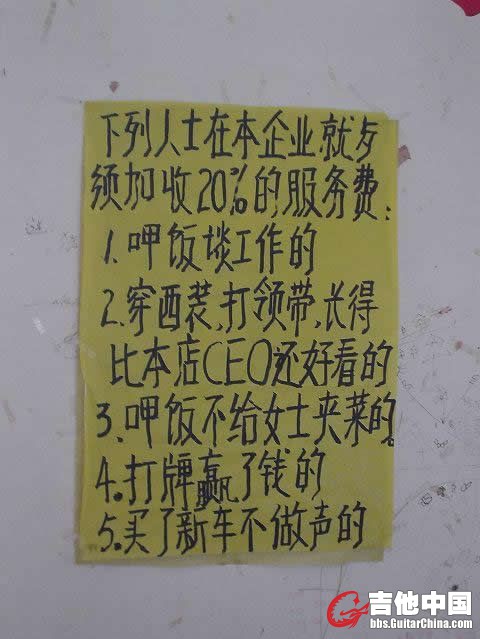 下列人士在本企业就歺
须加收20%的服务费:
1.呷饭谈工作的
2.穿西装,打领带,长得
比本店CEO还好看的
3、呷饭不给女士夹菜的。
4.打牌赢了钱的
5.买了新车不做声的
吉他中国
bbs.GuitarChina.com